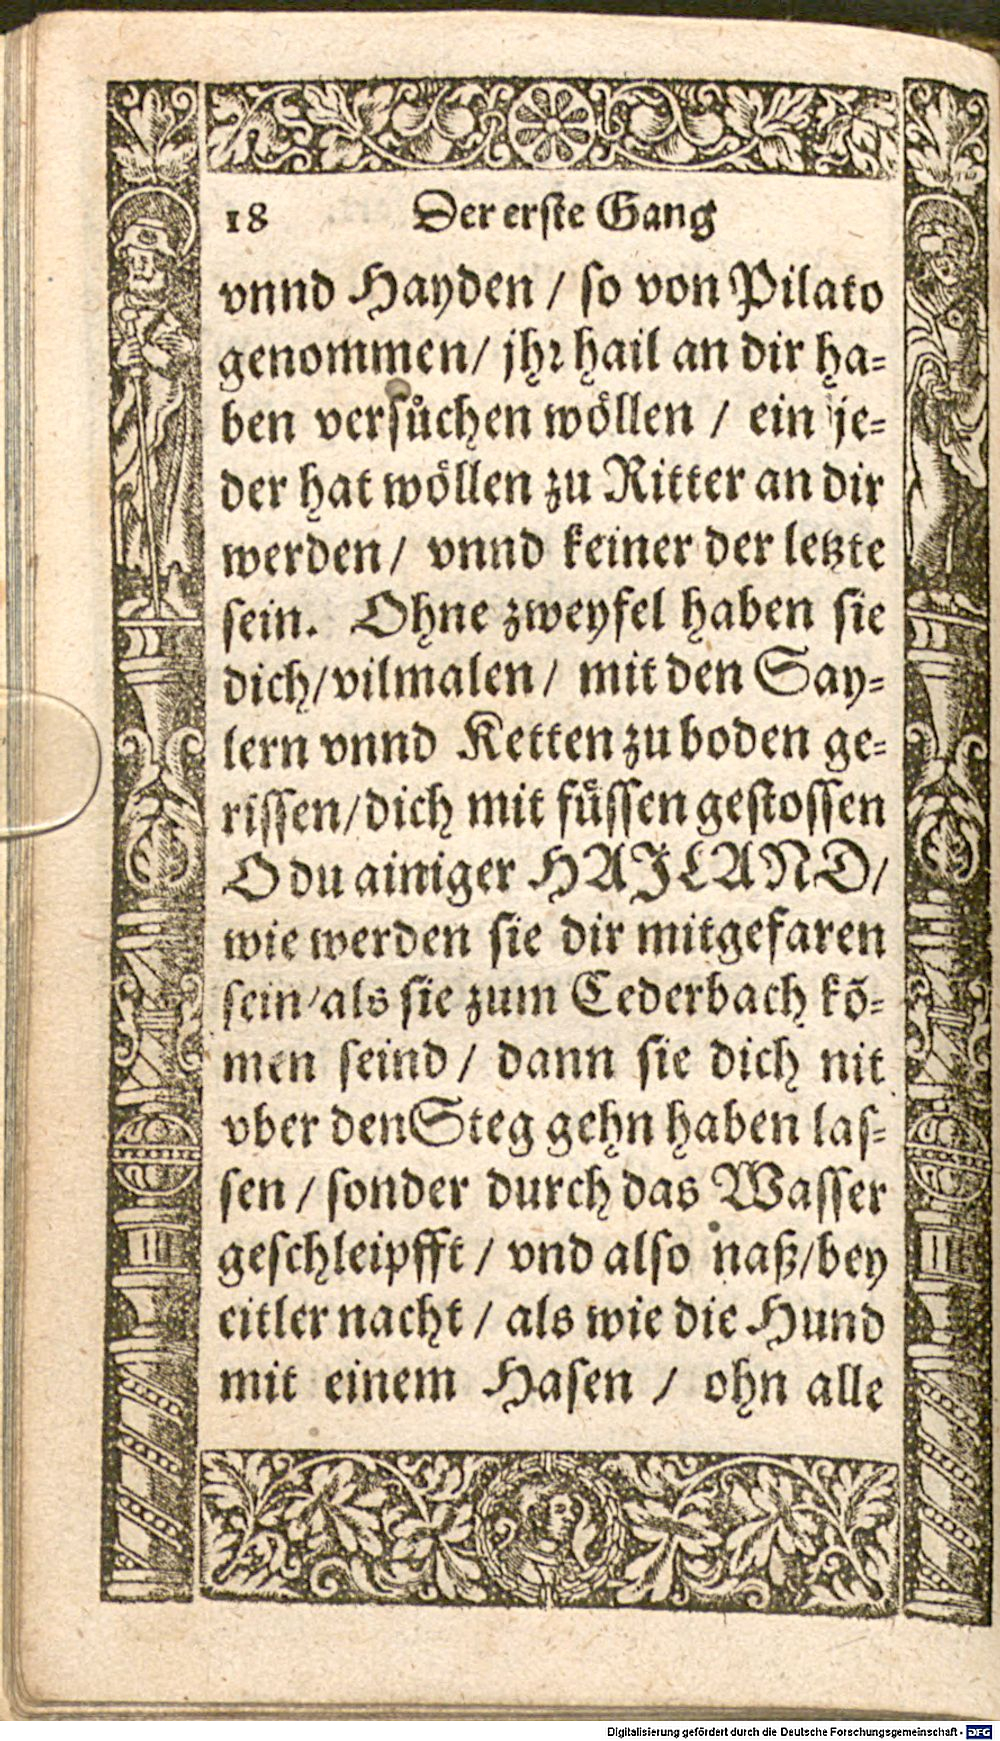 18 Der erste Gang
vnnd Hayden / so von Pilato
genommen / jhr hail an dir ha-
ben versůchen wöllen / ein je-
der hat wöllen zu Ritter an dir
werden / vnnd keiner der letzte
sein. Ohne zweyfel haben sie
dich / vilmalen / mit den Say-
lern vnnd Ketten zu boden ge-
rissen / dich mit füssen gestossen
O du ainiger HAJLAND /
wie werden sie dir mitgefaren
sein / als sie zum Cederbach kö-
men seind / dann sie dich nit
vber den Steg gehn haben las-
sen / sonder durch das Wasser
geschleipfft / vnd also naß / bey
eitler nacht / als wie die Hund
mit einem Hasen / ohn alle
Digitalisierung gefördert durch die Deutsche Forschungsgemeinschaft - DFG